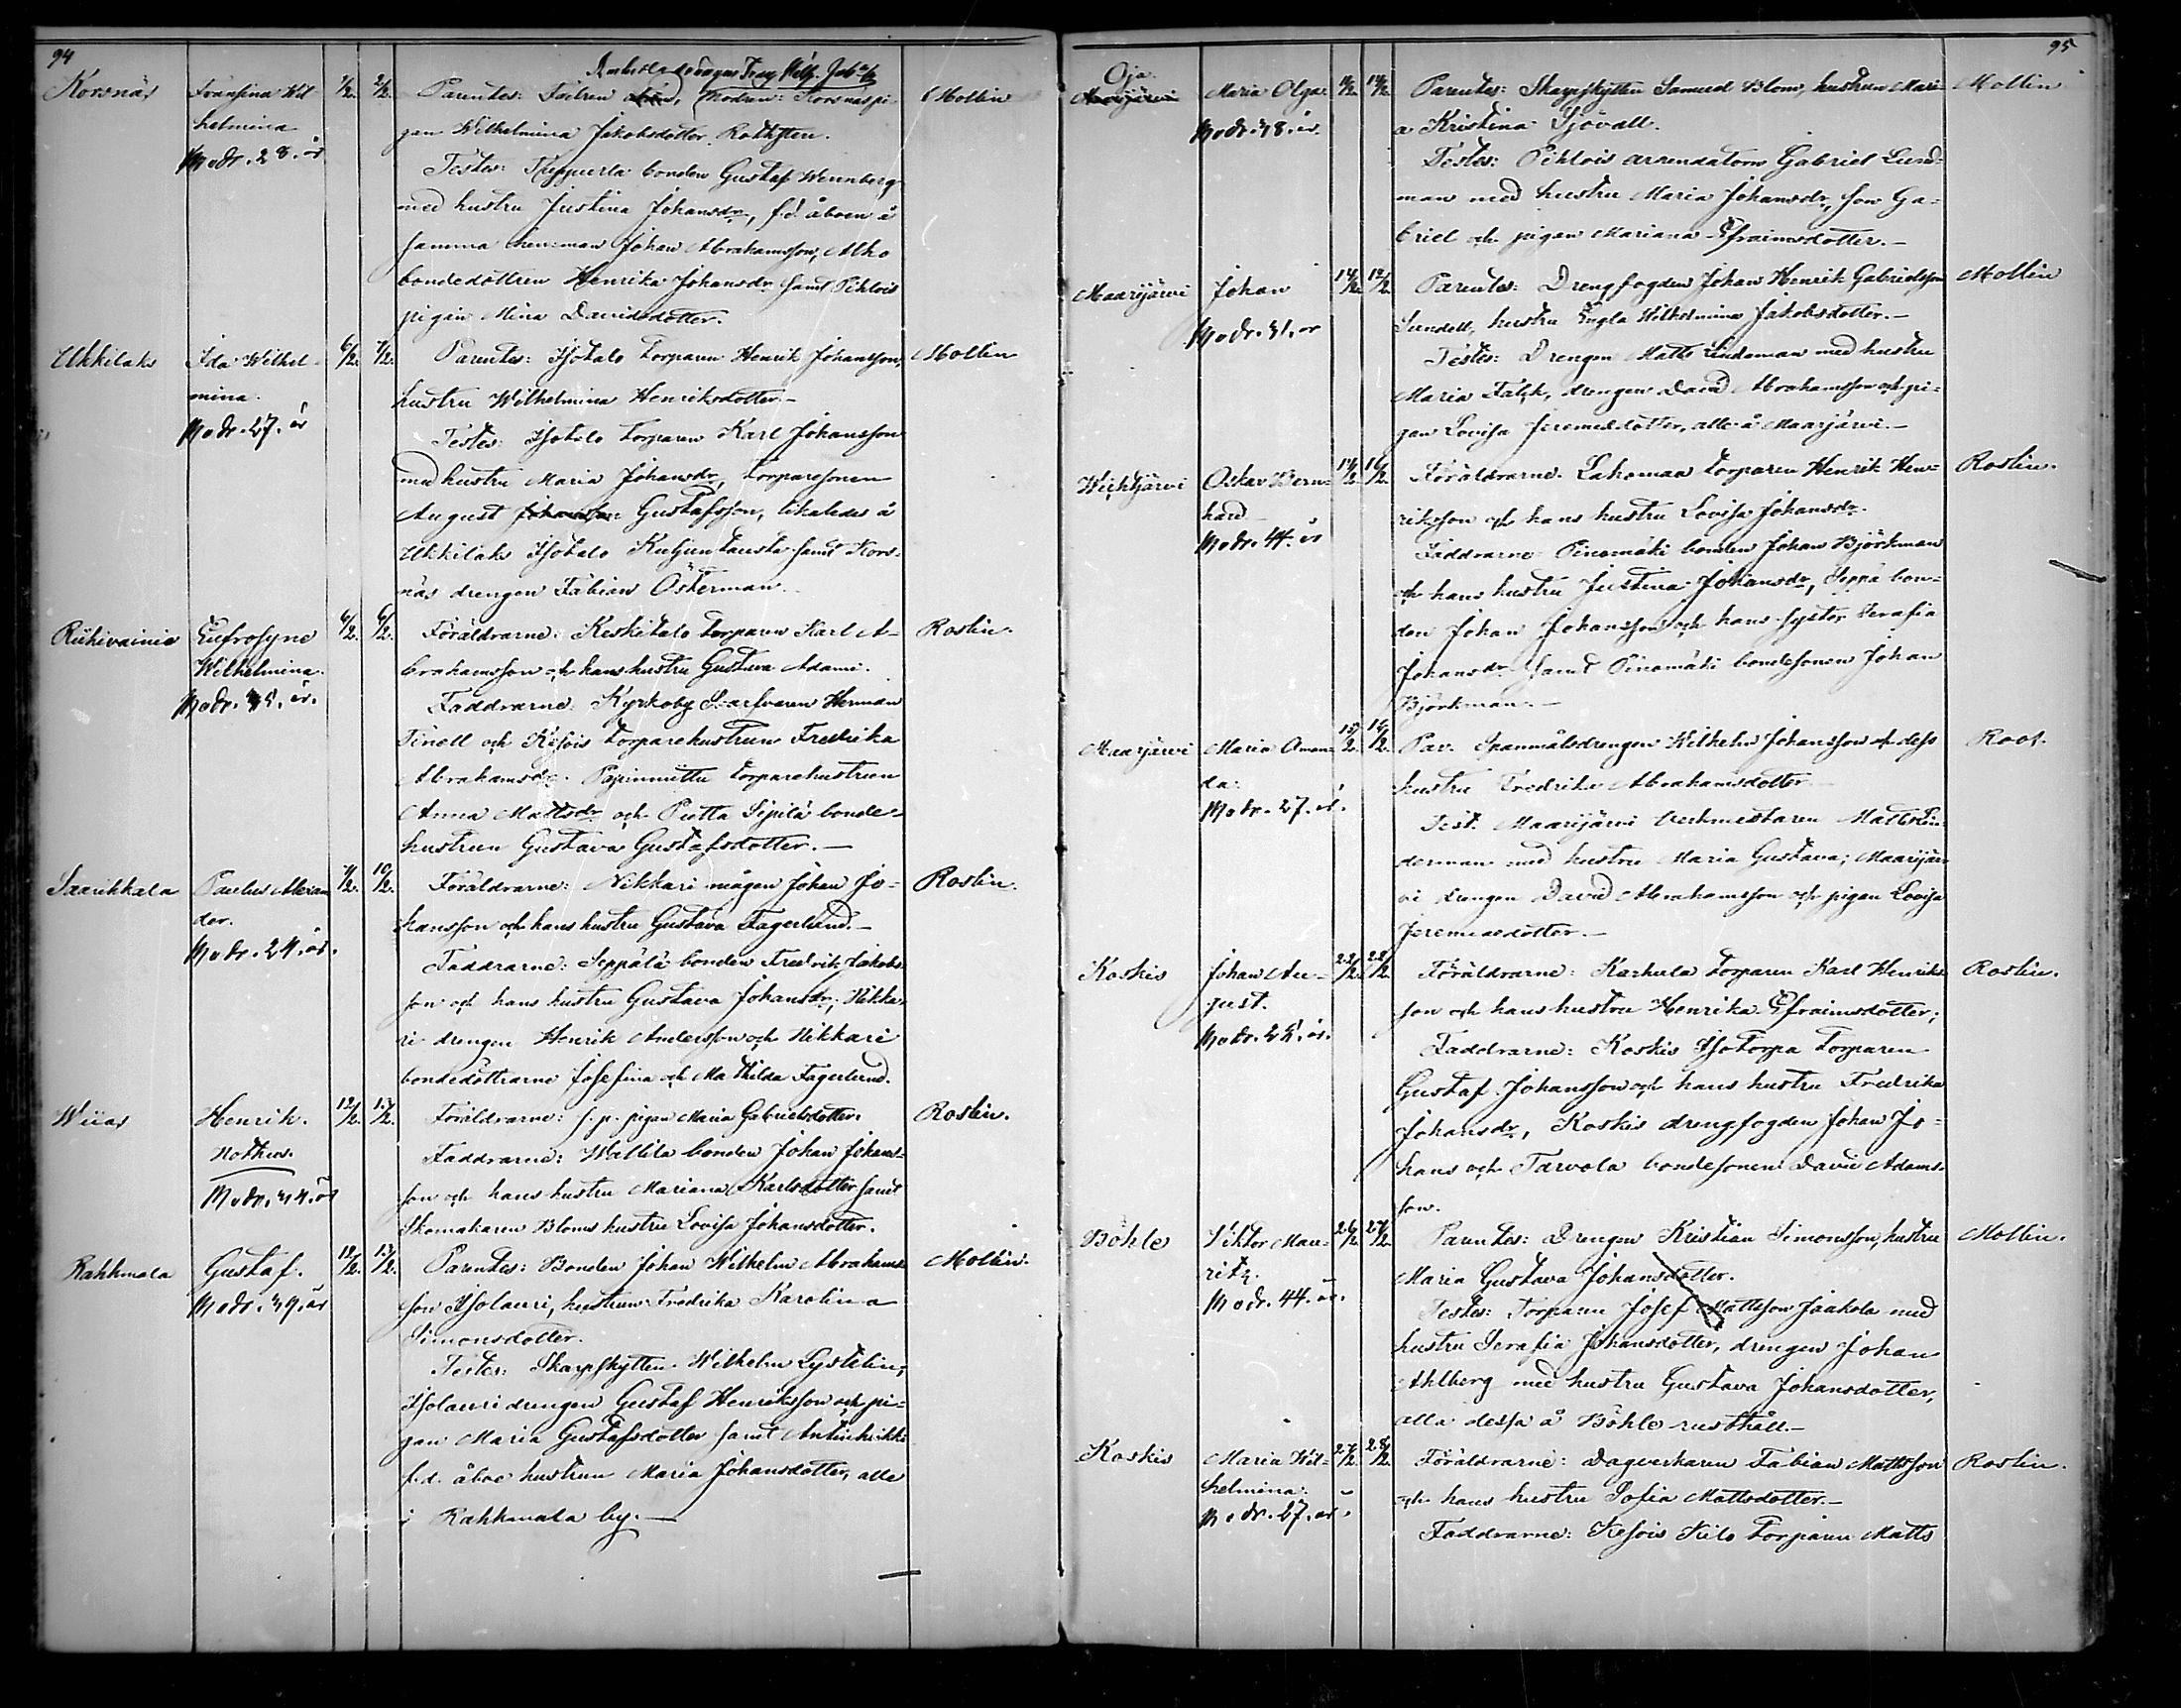 94
Korsnäs
Fransina Wil
helmina
Modr. 28. år
1/2. 2/2.
Parentes: Fadren Modren: Korsnäs pi-
gan Wilhelmina Jakobsdotter.
Testes: bonden Gustaf Wennberg
med hustru Justina Johansdr, f.d. åboen å
samma hemman Johan Abrahamsson, Alho
bondedottren Henrika Johansdr samt Pihlois
pigan Mina Davidsdotter.
Mollin
Ukkilaks
Ida Wilhel-
mina.
Modr. 27. år
6/2. 7/2.
Parentes: Isotalo torparen Henrik Johansson,
hustru Wilhelmina Henriksdotter.-
Testes: Isotalo torparen Karl Johansson
med hustru Maria Johansdr, torparesonen
August Johansson Gustafsson, likaledes å
Ukkilaks Isotalo Kuljuntausta samt Kors-
näs drengen Fabian Österman.
Mollin
Riihivainio
Eufrosyne
Wilhelmina.
Modr. 35. år.
6/2. 6/2.
Föräldrarne: Keskitalo torparen Karl A-
brahamsson och hans hustru Gustava Adami.
Faddrarne: Kyrkoby Skarfvaren Herman
Tinell och Kesois torparehustrun Fredrika
Abrahamsdr. Papinniittu torparehustrun
Anna Mattsdr och Pietta Sipilä bonde-
hustrun Gustava Gustafsdotter.-
Roslin.
Saarikkala
Paulus Alexan
der.
Modr. 24. år.
7/2. 10/2.
Föräldrarne: Nikkari mågen Johan Jo-
hansson och hans hustru Gustava Fagerlund.-
Faddrarne: Seppälä bonden Fredrik Jakobs-
son och hans hustru Gustava Johansdr, Nikka-
ri drengen Henrik Andersson och Nikkari
bondedöttrarne Josefina och Mathilda Fagerlund.
Roslin.
Wiias
Henrik.
Nothus.
Modr. 34. år
12/2. 13/2.
Föräldrarne: s.p. pigan Maria Gabrielsdotter.
Faddrarne: Wallila bonden Johan Johans-
son och hans hustru Mariana Karlsdotter samt
Skomakaren Bloms hustru Lovisa Johansdotter.
Roslin.
Rahkmala
Gustaf.
Modr. 39. år
12/2. 13/2.
Parentes: Bonden Johan Wilhelm Abrahams-
son Isolauri, hustrun Fredrika Karolina
Simonsdotter.
Testes: Skarpskytten Wilhelm Lystelin,
Isolauri drengen Gustaf Henriksson och pi-
gan Maria Gustafsdotter samt Antinheikki
f.d. åboe hustrun Maria Johansdotter, alla
i Rahkmala by.-
Mollin.
95
Oja.
Maarijärvi
Maria Olga.
Modr. 38. år.
11/2. 14/2.
Parentes: Skarpskytten Samuel Blom, hustrun Mari-
a Kristina Sjövall.
Testes: Pihlois arrendatorn Gabriel Lund-
man med hustru Maria Johansdr, son Ga-
briel och pigan Mariana Efraimsdotter.-
Mollin
Maarijärvi
Johan
Modr. 31. år
14/2. 14/2.
Parentes: Drengfogden Johan Henrik Gabrielsson
Sundell, hustru Engla Wilhelmina Jakobsdotter.-
Testes: Drengen Matts Lindeman med hustru
Maria Falck, drengen David Abrahamsson och pi-
gan Lovisa Jeremiedotter, alla å Maarijärvi.-
Mollin
Wiehtjärvi
Oskar Bern-
hard
Modr. 44. år
14/2. 16/2.
Föräldrarne. Lahomaa torparen Henrik Hen-
riksson och hans hustru Lovisa Johansdr.
Faddrarne Pinomäki bonden Johan Björkman
och hans hustru Justina Johansdr, Seppä bon-
den Johan Johansson och hans syster Serafia
Johansdr samt Pinomäki bondesonen Johan
Björkman.-
Roslin.
Maarijärvi
Maria Aman-
da.
Modr. 27. år.
15/2. 16/2.
Par. Spanmålsdrengen Wilhelm Johansson och dess
hustru Fredrika Abrahamsdotter
Test. Maarijärvi Verkmästaren Matts Lin-
derman med hustru Maria Gustava; Maarijär-
vi drengen David Abrahamsson och pigan Lovisa
Jeremiedotter.-
Roos.
Koskis
Johan Au-
gust.
Modr. år.
22/2. 28/2.
Föräldrarne: Karhula torparen Karl Henriks-
son och hans hustru Henrika Efraimsdotter;
Faddrarne: Koskis Isotorpa torparen
Gustaf Johansson och hans hustru Fredrika
Johansdr, Koskis drengfogden Johan Jo-
hans och Tarvola bondesonen David Adams-
son.
Roslin.
Böhle
Viktor Mau-
ritz.
Modr. 44. år.
26/2. 27/2.
Parentes: Drengen Kristian Simonsson, hustru
Maria Gustava Johansdotter.
Testes: Torparen Josef Mattsson Jaakola med
hustru Serafia Johansdotter, drengen Johan
Ahlberg med hustru Gustava Johansdotter,
alla dessa å Böhle rusthåll.-
Mollin.
Koskis
Maria Wil-
helmina.
Modr. 27. år.
27/2. 28/2.
Föräldrarne: Dagverkaren Fabian Mattsson
och hans hustru Sofia Mattsdotter.-
Faddrarne: Kesois Kilo torparen Matts
Roslin.